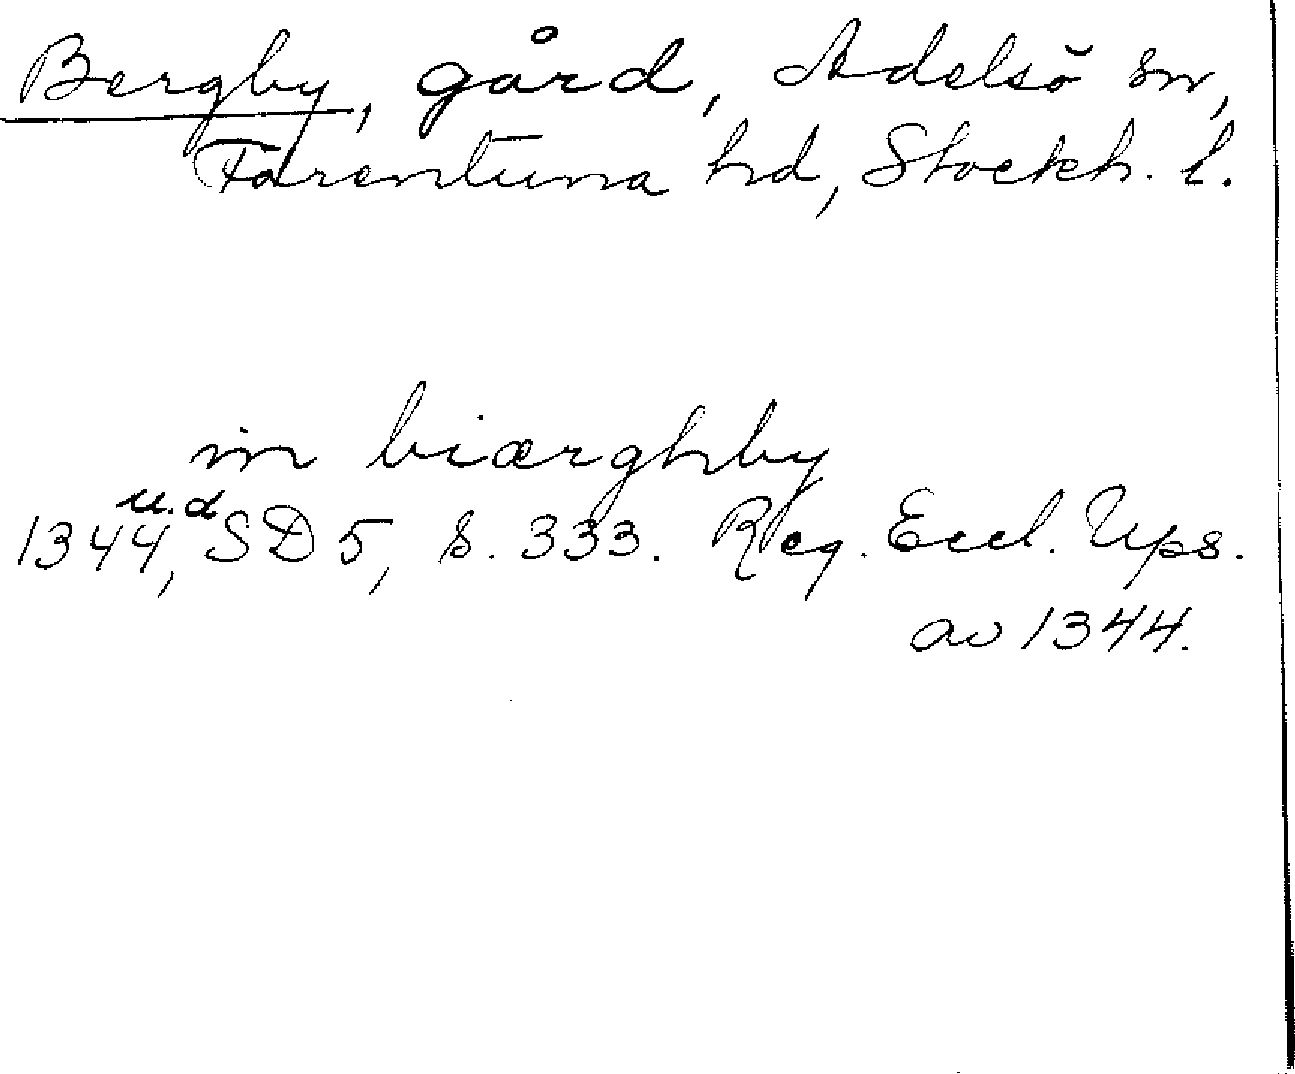 Bergby, gård, Adelsö sn,
Färentuna hd, Stockh. l.
in biærghby
1344 u.d, SD 5, s. 333. Reg. Eccl. Ups.
av 1344.